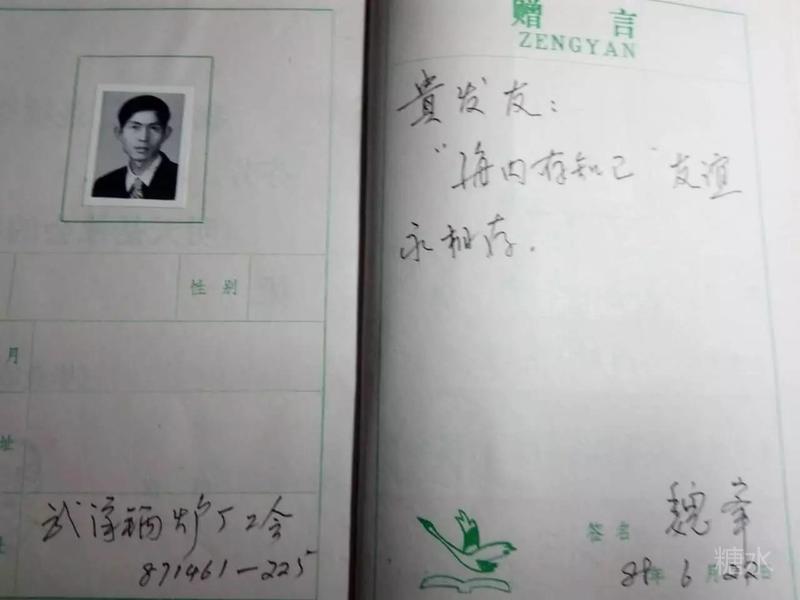 性别
月
址
址
武汉锅炉厂工会
871461—225
赠言
ZENGYAN
贵发友：
“海内存知己”友谊
永相存.
签名 魏
年6月22日
糖水